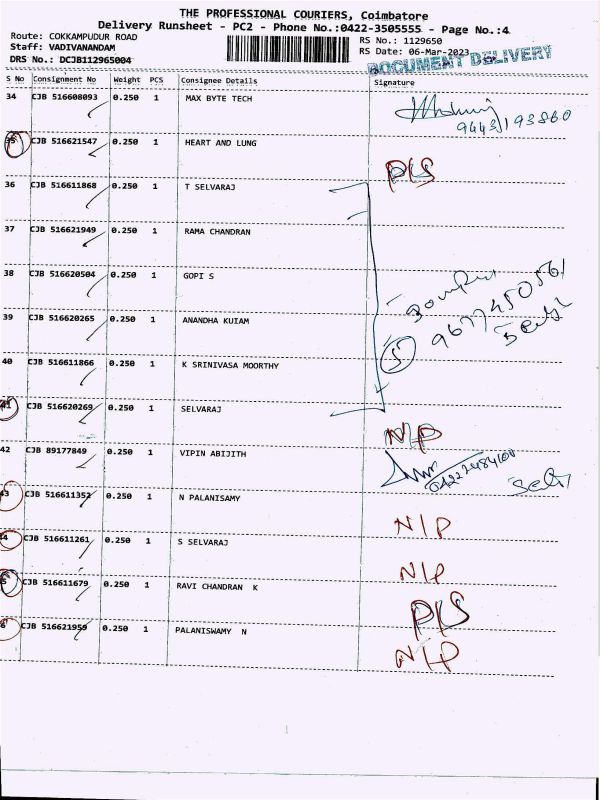 THE PROFESSIONAL COURIERS, Coimbatore
Delivery Runsheet - PC2 - Phone No.:0422-3505555 - Page No.:4
Route: COKKAMPUDUR ROAD
RS No.: 1129650
Staff: VADIVANANDAM
RS Date: 06-Mar-2023
DRS No.: DCJB112965004
DOCUMENT DELIVERY
S No Consignment No Weight PCS Consignee Details Signature
34 CJB 516608093 0.250 1 MAX BYTE TECH
9443193860
35 CJB 516621547 0.250 1 HEART AND LUNG
P/S
36 CJB 516611868 0.250 1 T SELVARAJ
37 CJB 516621949 0.250 1 RAMA CHANDRAN
38 CJB 516620504 0.250 1 GOPI S
39 CJB 516620265 0.250 1 ANANDHA KUIAM
5
40 CJB 516611866 0.250 1 K SRINIVASA MOORTHY
41 CJB 516620269 0.250 1 SELVARAJ
N/P
42 CJB 89177849 0.250 1 VIPIN ABIJITH
43 CJB 516611352 0.250 1 N PALANISAMY
N/P
44 CJB 516611261 0.250 1 S SELVARAJ
N/P
5 CJB 516611679 0.250 1 RAVI CHANDRAN K
P/S
6 CJB 516621959 0.250 1 PALANISWAMY N
N/P